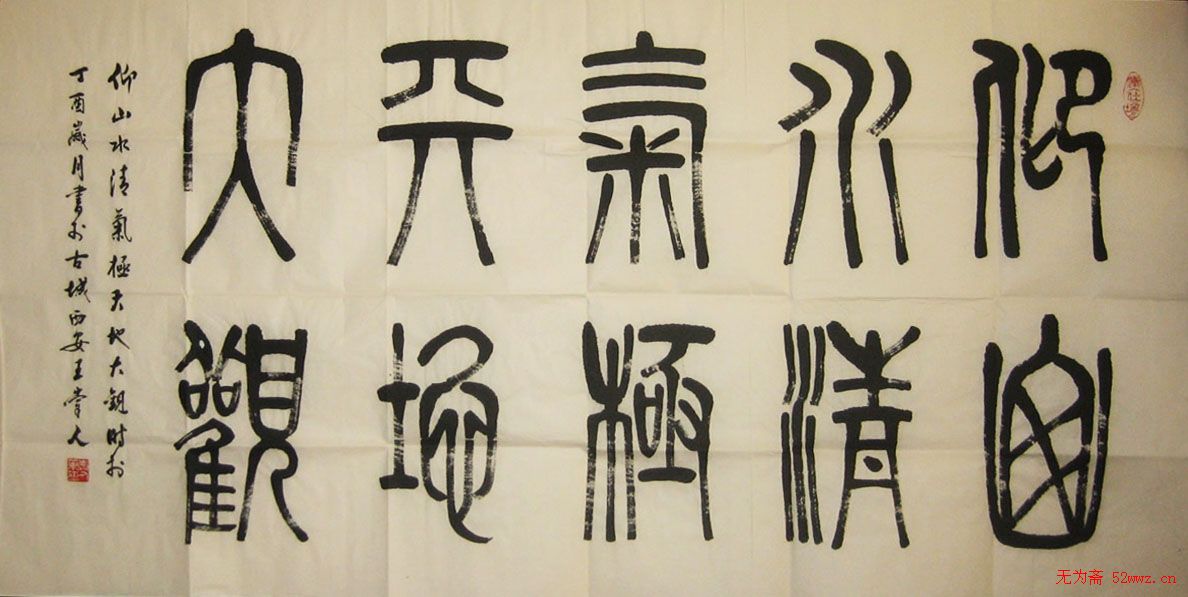 仰山
水清
氣極
天地
大觀
仰山水清氣極天地大觀时於
丁酉歲月書於古城西安王人
无为斋 52wwz.cn